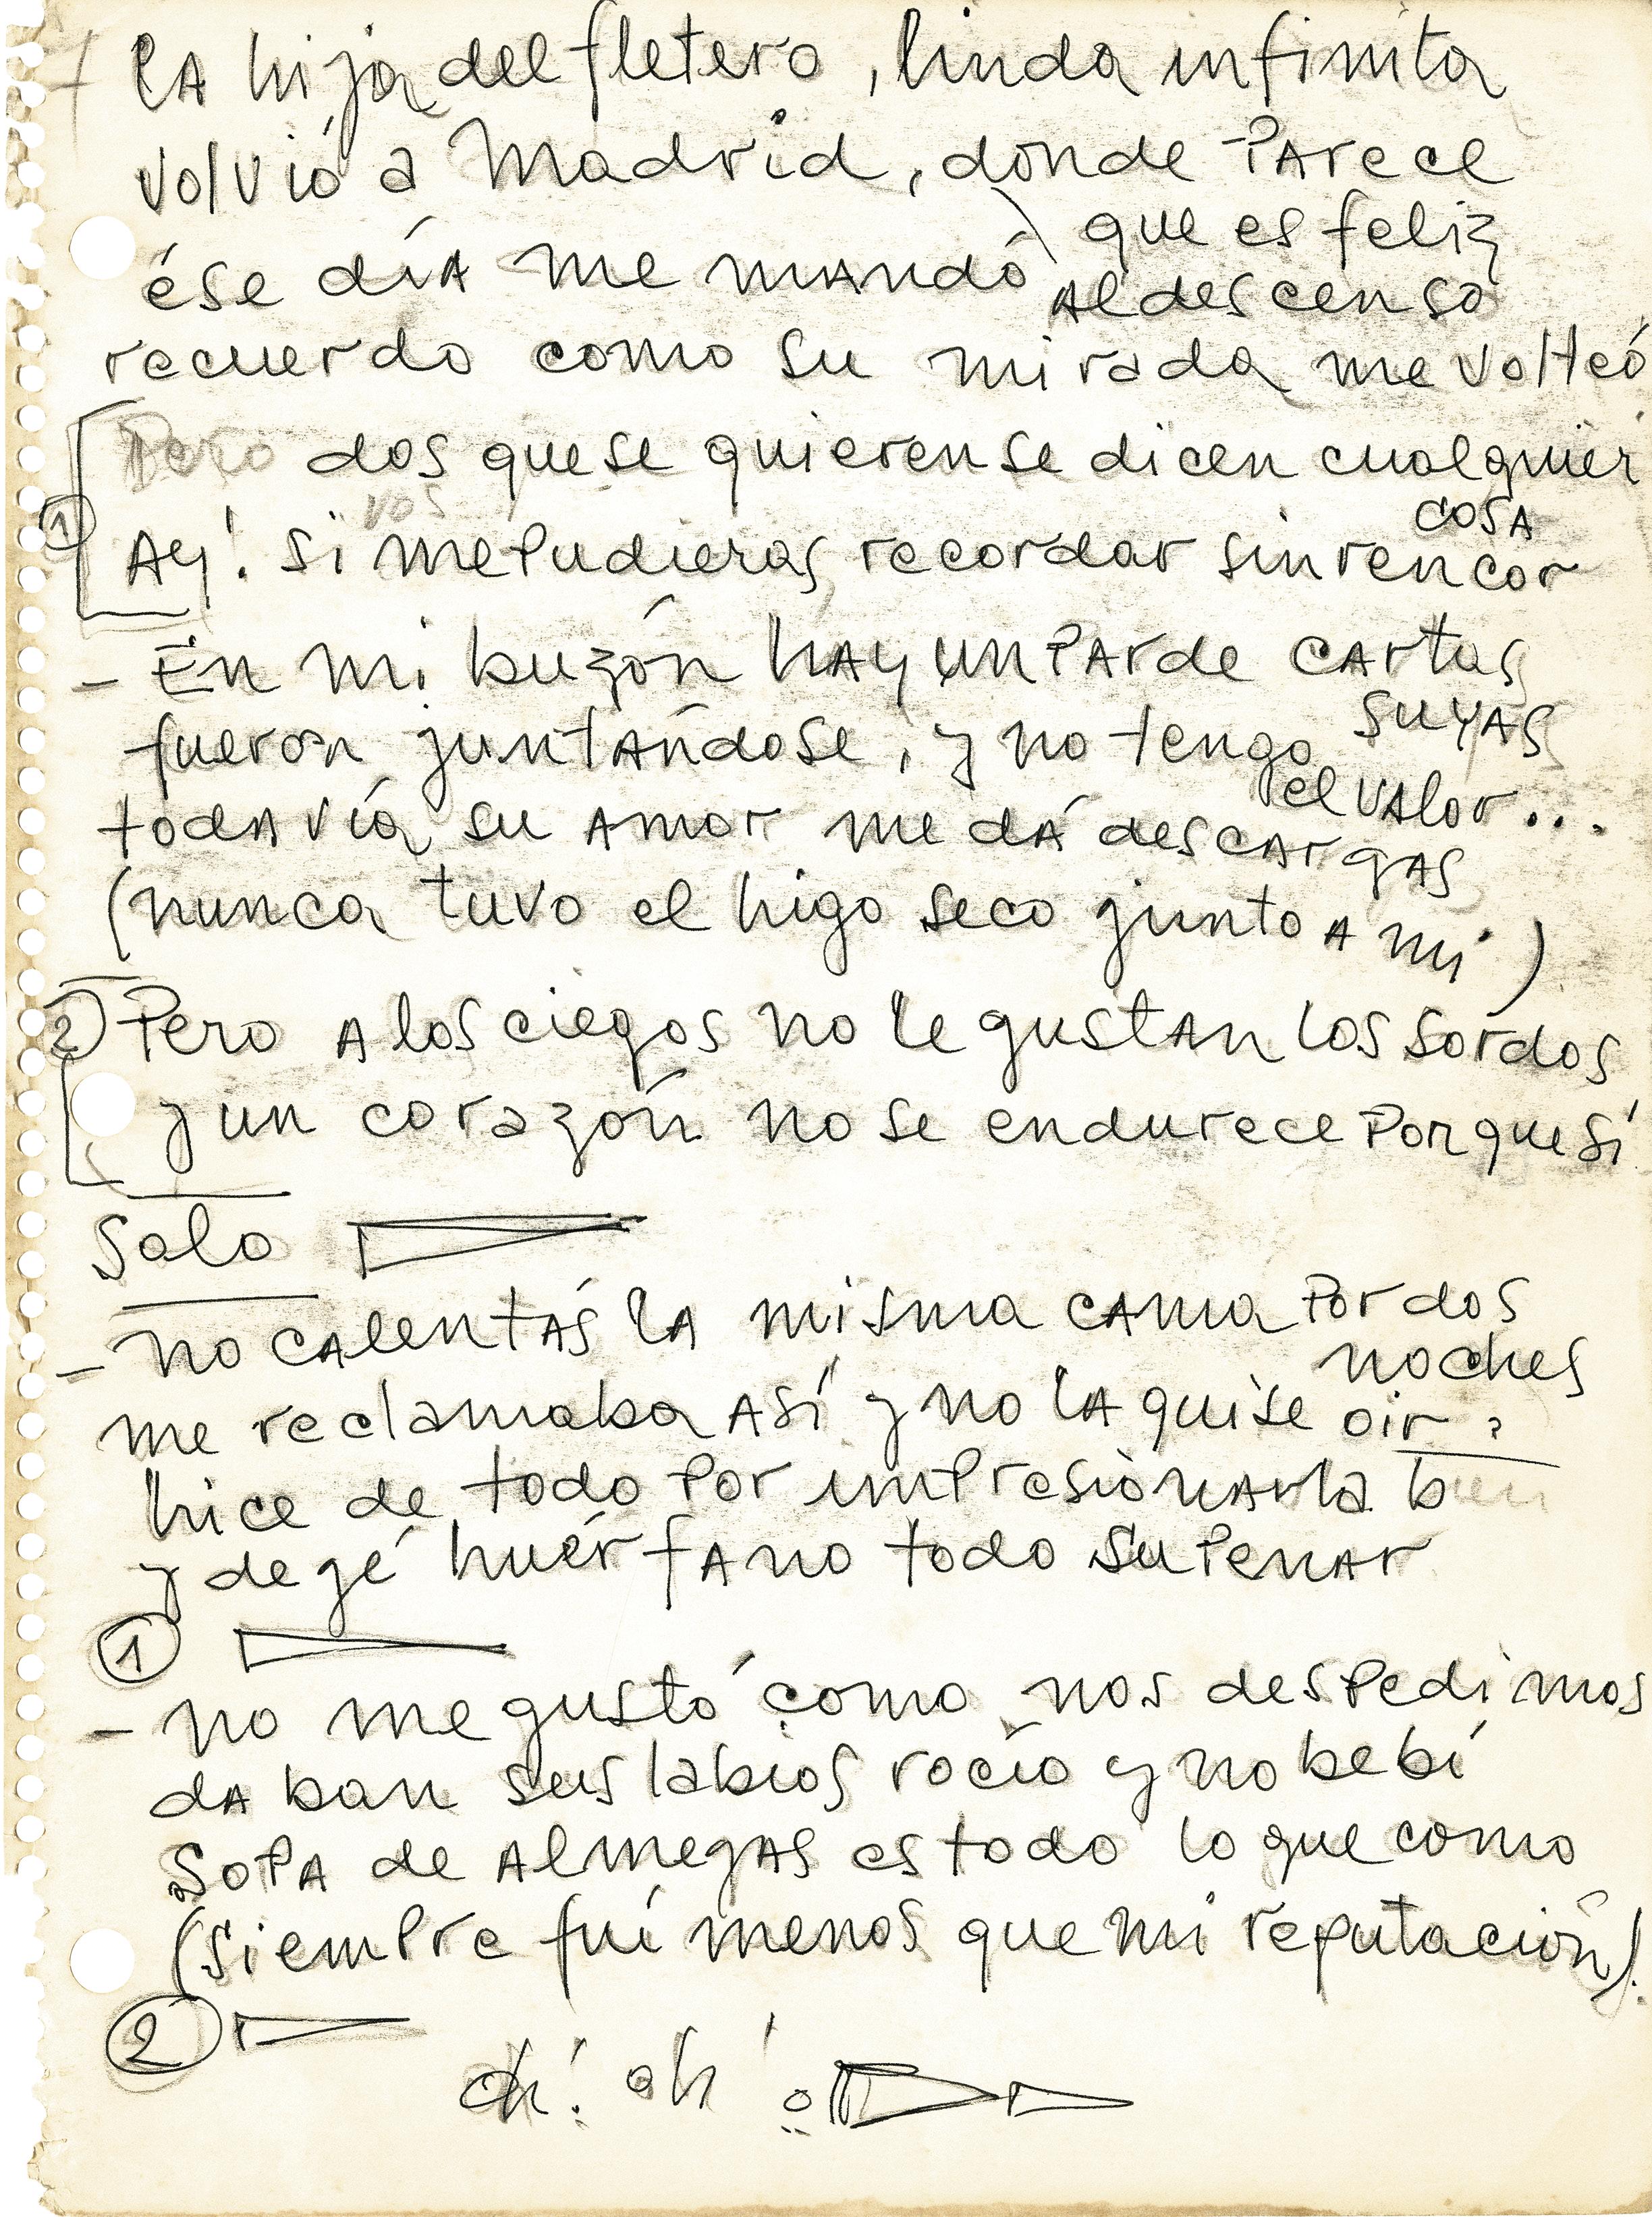 LA hija del fletero, linda infinita
volvió a Madrid, donde PArece
que es feliz
ése díA me mandó Al descenso
recuerdo como su mirada me volteó
Pero dos que se quieren se dicen cualquier
cosA
vos
1 Ay! si me Pudieras recordar sin rencor
- En mi buzón hAy un PAr de cArtas
suyAs
fueron juntÁndose, y no tengo
el vAlor...
todAvía su Amor me dÁ descArgAs
(nunca tuvo el higo seco junto A mí)
2 Pero A los ciegos no le gustAn los sordos
y un corazón no se endurece Porque sí
Solo
- no cAlentÁs lA misma cAma Por dos
noches
me reclamaba Así y no lA quise oir
hice de todo Por imPresionArla bien
y degé huérfAno todo su PenAr
1
- no me gustó como nos desPedimos
dAban sus labios rocío y no bebí
SoPA de AlmegAs es todo lo que como
(siemPre fuí menos que mi reputación)!
2
oh! oh!